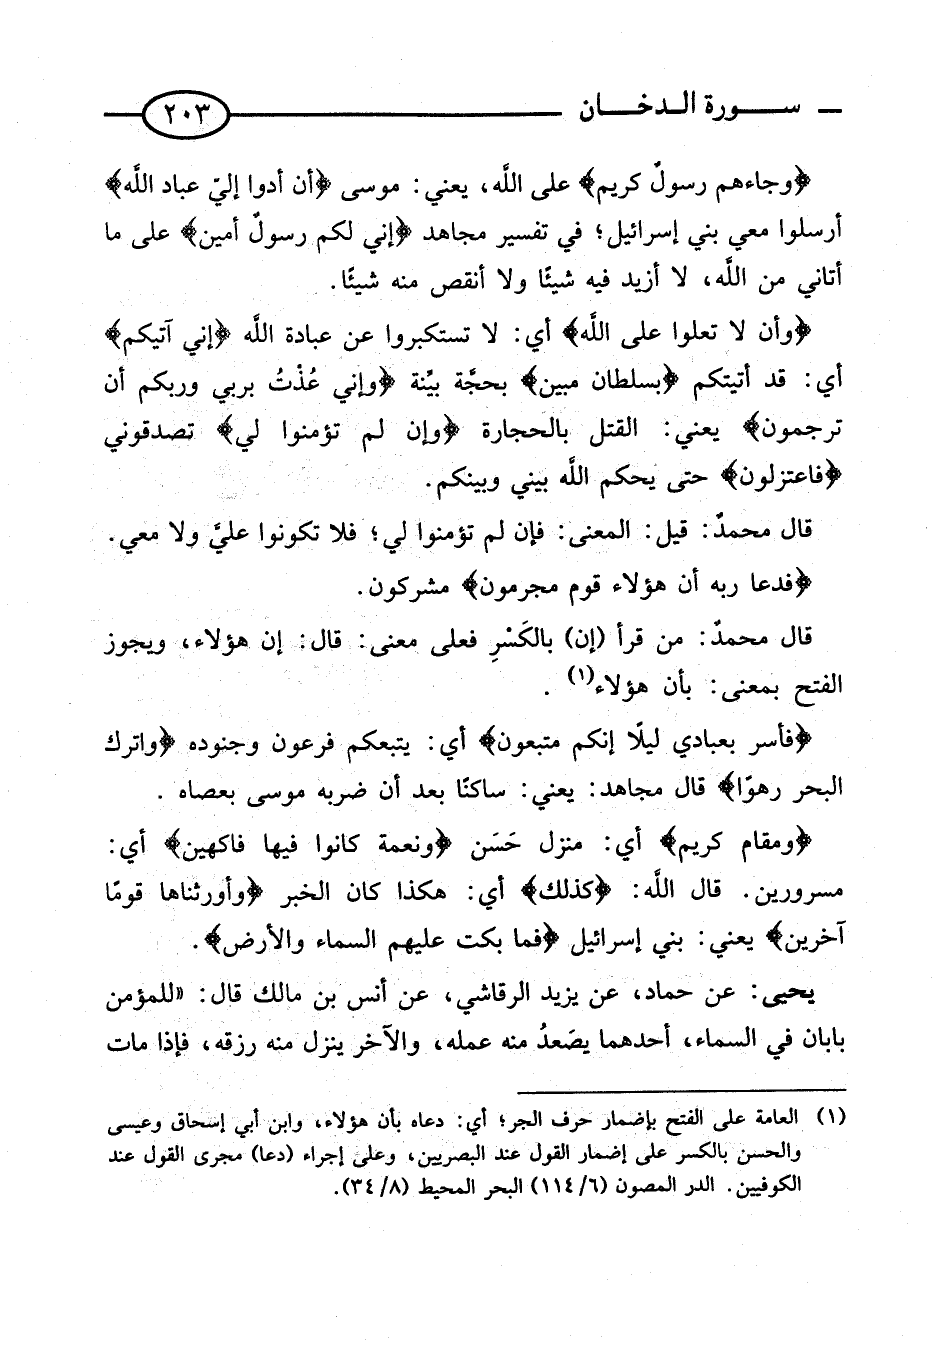 سورة الدخان ٢٠٣
﴿وجاءهم رسولٌ كريم﴾ على اللَّه، يعني: موسى ﴿أن أدوا إليّ عباد اللَّه﴾
أرسلوا معي بني إسرائيل؛ في تفسير مجاهد ﴿إني لكم رسولٌ أمين﴾ على ما
أتاني من اللَّه، لا أزيد فيه شيئًا ولا أنقص منه شيئًا.
﴿وأن لا تعلوا على اللَّه﴾ أي: لا تستكبروا عن عبادة اللَّه ﴿إني آتيكم﴾
أي: قد أتيتكم ﴿بسلطان مبين﴾ بحجَّة بيِّنة ﴿وإني عُذْتُ بربي وربكم أن
ترجمون﴾ يعني: القتل بالحجارة ﴿وإن لم تؤمنوا لي﴾ تصدقوني
﴿فاعتزلون﴾ حتى يحكم اللَّه بيني وبينكم.
قال محمدٌ: قيل: المعنى: فإن لم تؤمنوا لي؛ فلا تكونوا عليَّ ولا معي.
﴿فدعا ربه أن هؤلاء قوم مجرمون﴾ مشركون.
قال محمدٌ: من قرأ (إن) بالكَسْرِ فعلى معنى: قال: إن هؤلاء، ويجوز
الفتح بمعنى: بأن هؤلاء(١) .
﴿فأسر بعبادي ليلًا إنكم متبعون﴾ أي: يتبعكم فرعون وجنوده ﴿واترك
البحر رهوًا﴾ قال مجاهد: يعني: ساكنًا بعد أن ضربه موسى بعصاه .
﴿ومقام كريم﴾ أي: منزل حَسَن ﴿ونعمة كانوا فيها فاكهين﴾ أي:
مسرورين. قال اللَّه: ﴿كذلك﴾ أي: هكذا كان الخبر ﴿وأورثناها قومًا
آخرين﴾ يعني: بني إسرائيل ﴿فما بكت عليهم السماء والأرض﴾.
يحيى: عن حماد، عن يزيد الرقاشي، عن أنس بن مالك قال: «للمؤمن
بابان في السماء، أحدهما يصَعدُ منه عمله، والآخر ينزل منه رزقه، فإذا مات
(١) العامة على الفتح بإضمار حرف الجر؛ أي: دعاه بأن هؤلاء، وابن أبي إسحاق وعيسى
والحسن بالكسر على إضمار القول عند البصريين، وعلى إجراء (دعا) مجرى القول عند
الكوفيين. الدر المصون (٦/ ١١٤) البحر المحيط (٨/ ٣٤).